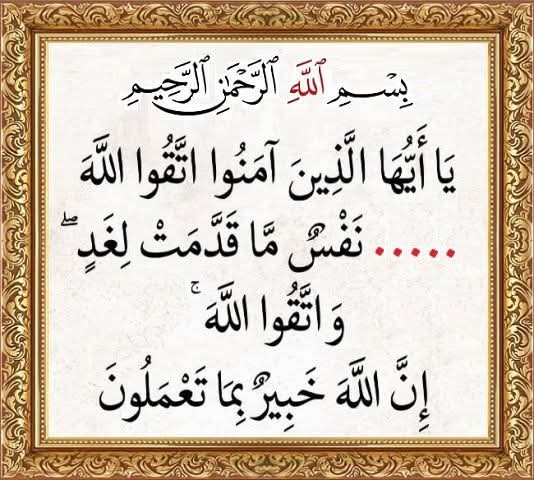 بِسْمِ ٱللَّهِ ٱلرَّحْمَٰنِ ٱلرَّحِيمِ
يَا أَيُّهَا الَّذِينَ آمَنُوا اتَّقُوا اللَّهَ
..... نَفْسٌ مَّا قَدَّمَتْ لِغَدٍ ۖ
وَاتَّقُوا اللَّهَ ۚ
إِنَّ اللَّهَ خَبِيرٌ بِمَا تَعْمَلُونَ